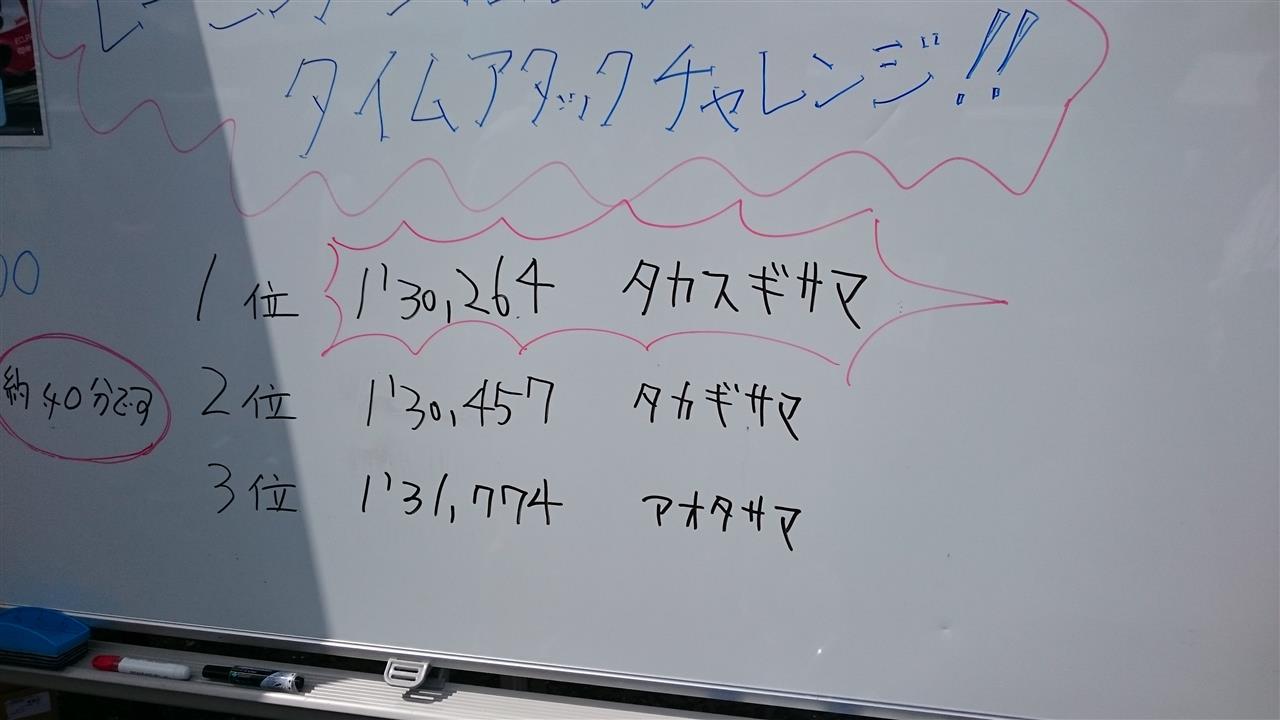 タイムアタックチャレンジ!!
00
1位 1'30,264 タカスギサマ
約40分です
2位 1'30,457 タカギサマ
3位 1'31,774 アオタサマ